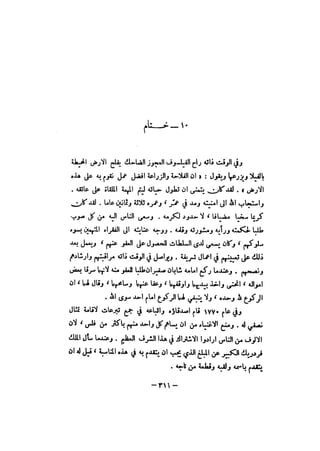 ١٠ — خــتــام
وفي الوقت ذاته راح الفيلسوف العجوز الضاحك يفلح الارض المحيطة
بالفيلا ويزرعها ويقول : « ان الفلاحة والزراعة افضل عمل نقوم به على هذه
الارض » . لقد كان يتمنى ان تطول حياته ليتم المهمة الملقاة على عاتقه .
واستجاب الله الى امنيته ومد في عمره ، وعمره ثلاثة وثمانين عاما . لقد كان
كريما سخيا مضيافا ، لا حدود لكرمه . وسعى الناس اليه من كل صوب
طلبا لحكمته ورأيه ومشورته وفقه . ووجه عنايته الى الفقراء المتهمين بسوء
سلوكهم ، وكان يسعى لدى السلطات للحصول على العفو عنهم ، ويعمل بعد
ذلك على تعيينهم في اعمال شريفة . ويواصل في الوقت ذاته مراقبتهم وارشادهم
ونصحهم . وعندما ركع امامه شابان صغيران طلبا للعفو منه لانهما سرقا بعض
امواله ، انحنى واخذ بيديهما واوقفهما ، وسامحهما وعفا عنهما ، وقال لهما ان
الركوع لله وحده ، ولا ينبغي لهما الركوع امام احد سوى الله .
وفي عام ١٧٧٠ قام اصدقاؤه واتباعه في جمع تبرعات لاقامة تمثال
نصفي له . ومنع الاغنياء من ان يساهم كل واحد منهم باكثر من فلس ، لأن
الالوف من الناس ارادوا الاشتراك في هذا الشرف العظيم . وعندما سأل الملك
فردريك الكبير عن المبلغ الذي يجب ان يتقدم به في هذه المناسبة ، قيل له ان
يتقدم باسمه ولقبه وقطعة من تاجه .
— ٣١١ —